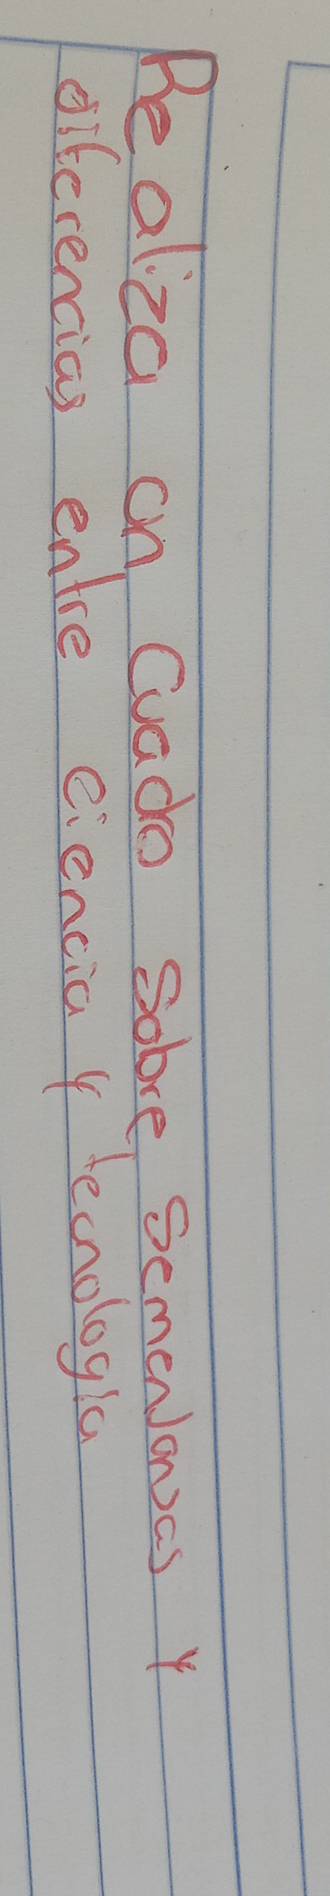 Realiza un Cuado sobre Semenjanzas y
diferencias entre ciencia y tecnología